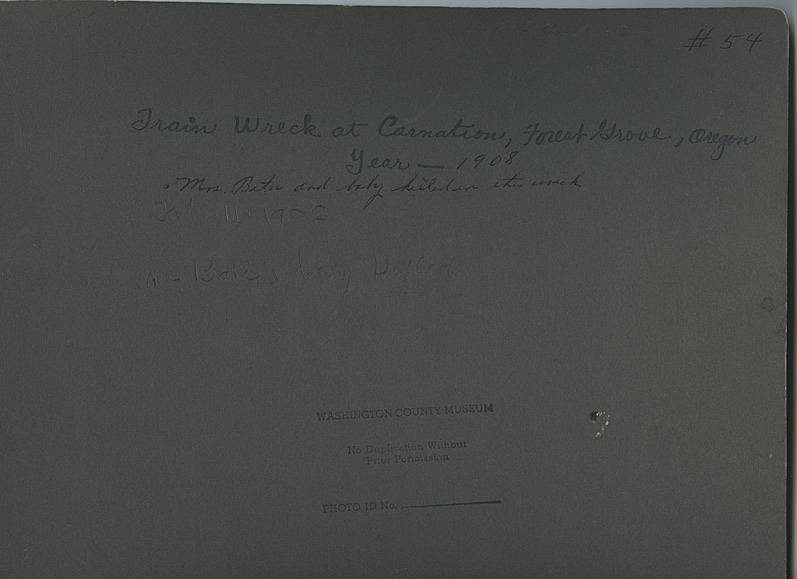 # 54
Train Wreck at Carnation, Forest Grove, Oregon
Year — 1908
Mrs. Bates and baby killed in this wreck
baby
WASHINGTON COUNTY MUSEUM
No Duplication Without
Prior Permission
PHOTO ID No.